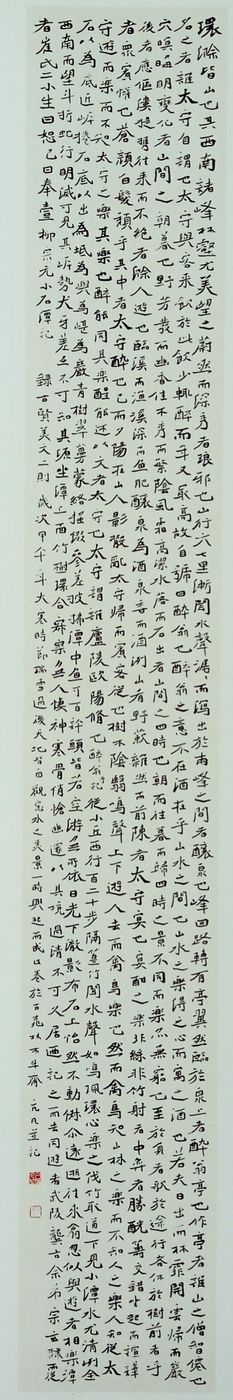 環滁皆山也其西南諸峰林壑尤美望之蔚然而深秀者琅邪也山行六七里漸聞水聲潺而瀉出於兩峰之間者釀泉也峰回路轉有亭翼然臨於泉上者醉翁亭也作亭者誰山之僧智僊也
名之者誰太守自謂也太守與客來飲於此飲少輒醉而年又最高故自號曰醉翁也醉翁之意不在酒在乎山水之間也山水之樂得之心而寓之酒也若夫日出而林霏開雲歸而巖
穴暝晦明變化者山間之朝暮也野芳發而幽香佳木秀而繁陰風霜高潔水落而石出者山間之四時也朝而往暮而歸四時之景不同而樂亦無窮也至於負者歌於途行者休於樹前者乎
後者應傴僂提攜往來而不絕者滁人遊也臨溪而漁溪深而魚肥釀泉為酒泉香而酒洌山肴野蔌雜然而前陳者太守宴也宴酣之樂非絲非竹射者中弈者勝觥籌交錯坐起而諠譁
者眾賓懽也蒼顏白髮頹乎其中者太守醉也已而夕陽在山人影散亂太守歸而賓客從也樹林陰翳鳴聲上下遊人去而禽鳥樂也然而禽鳥知山林之樂而不知人之樂人知從太
守遊而樂而不知太守之樂其樂也醉能同其樂醒能述以文者太守也太守謂誰廬陵歐陽脩也 醉翁亭記 從小丘西行百二十步隔篁竹聞水聲如鳴佩環心樂之伐竹取道下見小潭水尤清冽全
石以為底近岸卷石底以出為坻為嶼為嵁為巖青樹翠蔓蒙絡搖綴參差披拂潭中魚可百許頭皆若空遊無所依日光下澈影布石上怡然不動俶尓遠逝往來翕忽似與遊者相樂潭
西南而望斗折蛇行明滅可見其岸勢犬牙差互不可知其源坐潭上四面竹樹環合寂寥無人悽神寒骨悄愴幽邃以其境過清不可久居迺記之而去同遊者武陵龔古余弟宗玄隸而從
者崔氏二小生曰恕己曰奉壹 柳宗元小石潭記 錄古賢美文二則 歲次甲午年大寒時節瑞雪過後天地皆白觀水之美景一時興起而成此卷於 齋 并記